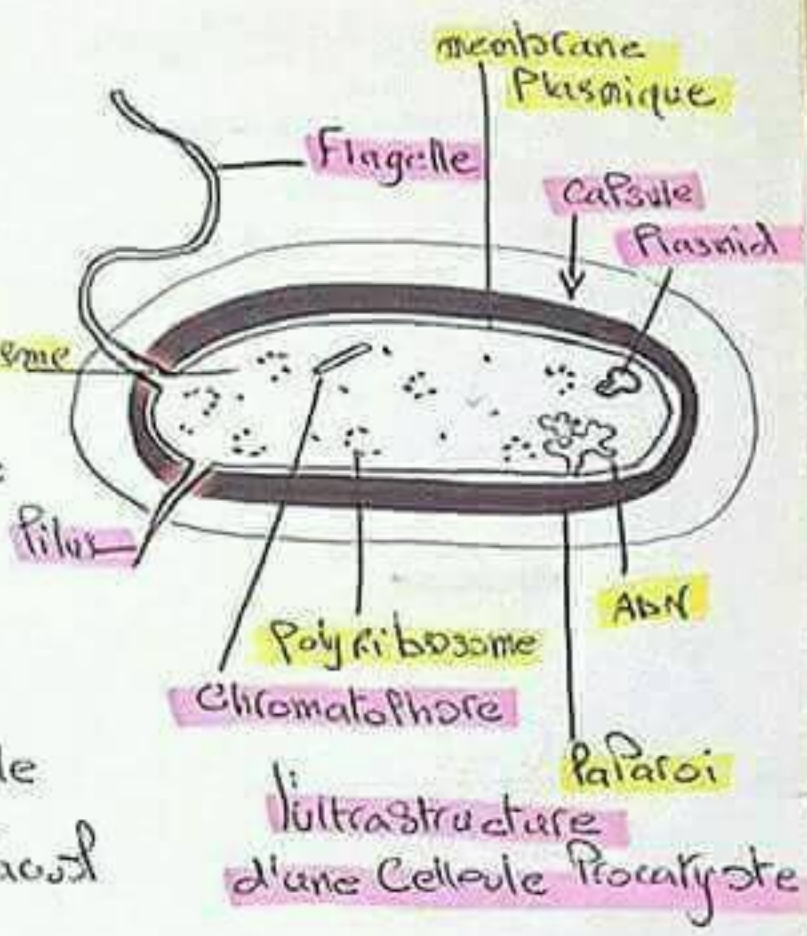 membrane
Plasmique
Flagelle
Capsule
Plasmid
Pilus
ADN
Polyribosome
Chromatophore
la Paroi
l'ultrastructure
d'une Cellule Procaryote